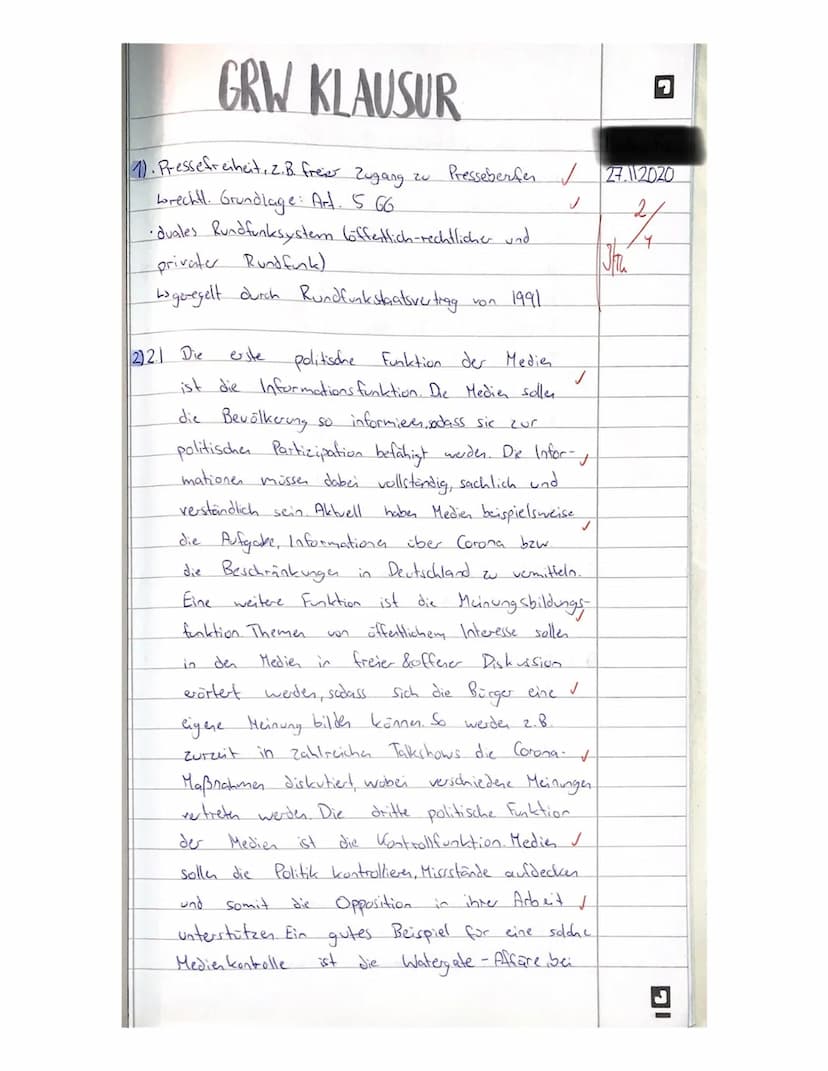 GRW KLAUSUR
27.11.2020
1). Pressefreiheit, z.B. freier Zugang zu Presseberufen
↳ rechtl. Grundlage: Art. 5 GG
2/4
· duales Rundfunksystem (öffentlich-rechtlicher und
privater Rundfunk)
↳ geregelt durch Rundfunkstaatsvertrag von 1991
2) 2.1 Die erste politische Funktion der Medien
ist die Informationsfunktion. Die Medien sollen
die Bevölkerung so informieren, sodass sie zur
politischen Partizipation befähigt werden. Die Infor-
mationen müssen dabei vollständig, sachlich und
verständlich sein. Aktuell haben Medien beispielsweise
die Aufgabe, Informationen über Corona bzw
die Beschränkungen in Deutschland zu vermitteln.
Eine weitere Funktion ist die Meinungsbildungs-
funktion. Themen von öffentlichem Interesse sollen
in den Medien in freier & offener Diskussion
erörtert werden, sodass sich die Bürger eine
eigene Meinung bilden können. So werden z.B.
zurzeit in zahlreichen Talkshows die Corona-
Maßnahmen diskutiert, wobei verschiedene Meinungen
vertreten werden. Die dritte politische Funktion
der Medien ist die Kontrollfunktion. Medien
sollen die Politik kontrollieren, Missstände aufdecken
und somit die Opposition in ihrer Arbeit
unterstützen. Ein gutes Beispiel für eine solche
Medienkontrolle ist die Watergate-Affäre, bei